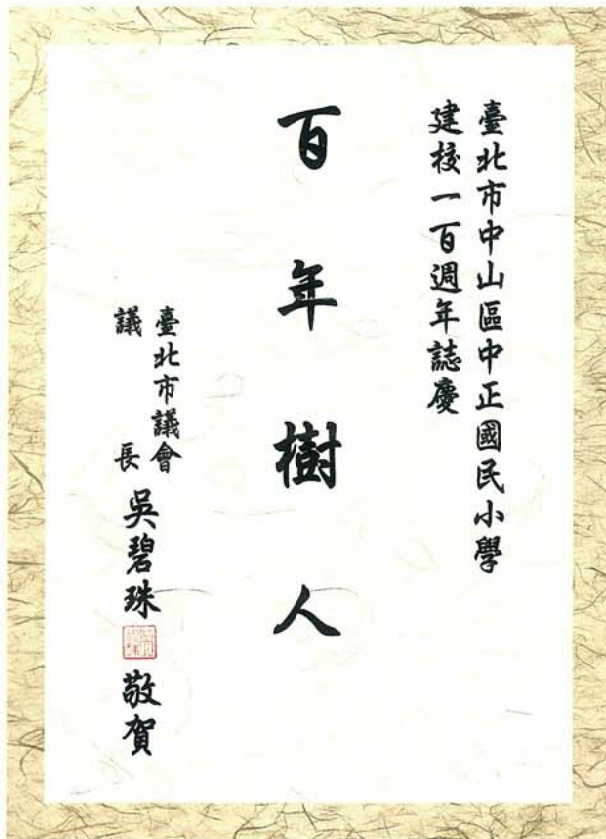 臺北市中山區中正國民小學
建校一百週年誌慶
百年樹人
臺北市議會
議長 吳碧珠 敬賀